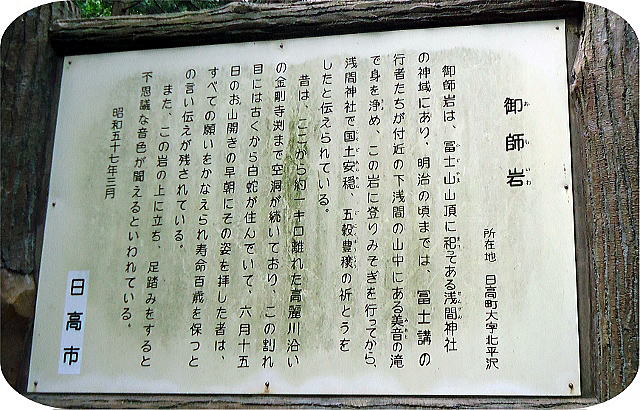 御師岩
所在地 日高町大字北平沢
御師岩は、冨士山山頂に祀そある浅間神社
の神域にあり、明治の頃までは、冨士講の
行者たちが付近の下浅間の山中にある美音の滝
で身を浄め、この岩に登りみそぎを行ってから、
浅間神社で国土安穏、五穀豊穣の祈とうを
したと伝えられている。
昔は、ここから約一キロ離れた高麗川沿い
の金剛寺渕まで空洞が続いており、この割れ
目には古くから白蛇が住んでいて、六月十五
日のお山開きの早朝にその姿を拝した者は、
すべての願いをかなえられ寿命百歳を保つと
の言い伝えが残されている。
また、この岩の上に立ち、足踏みをすると
不思議な音色が聞えるといわれている。
昭和五十七年三月
日高市